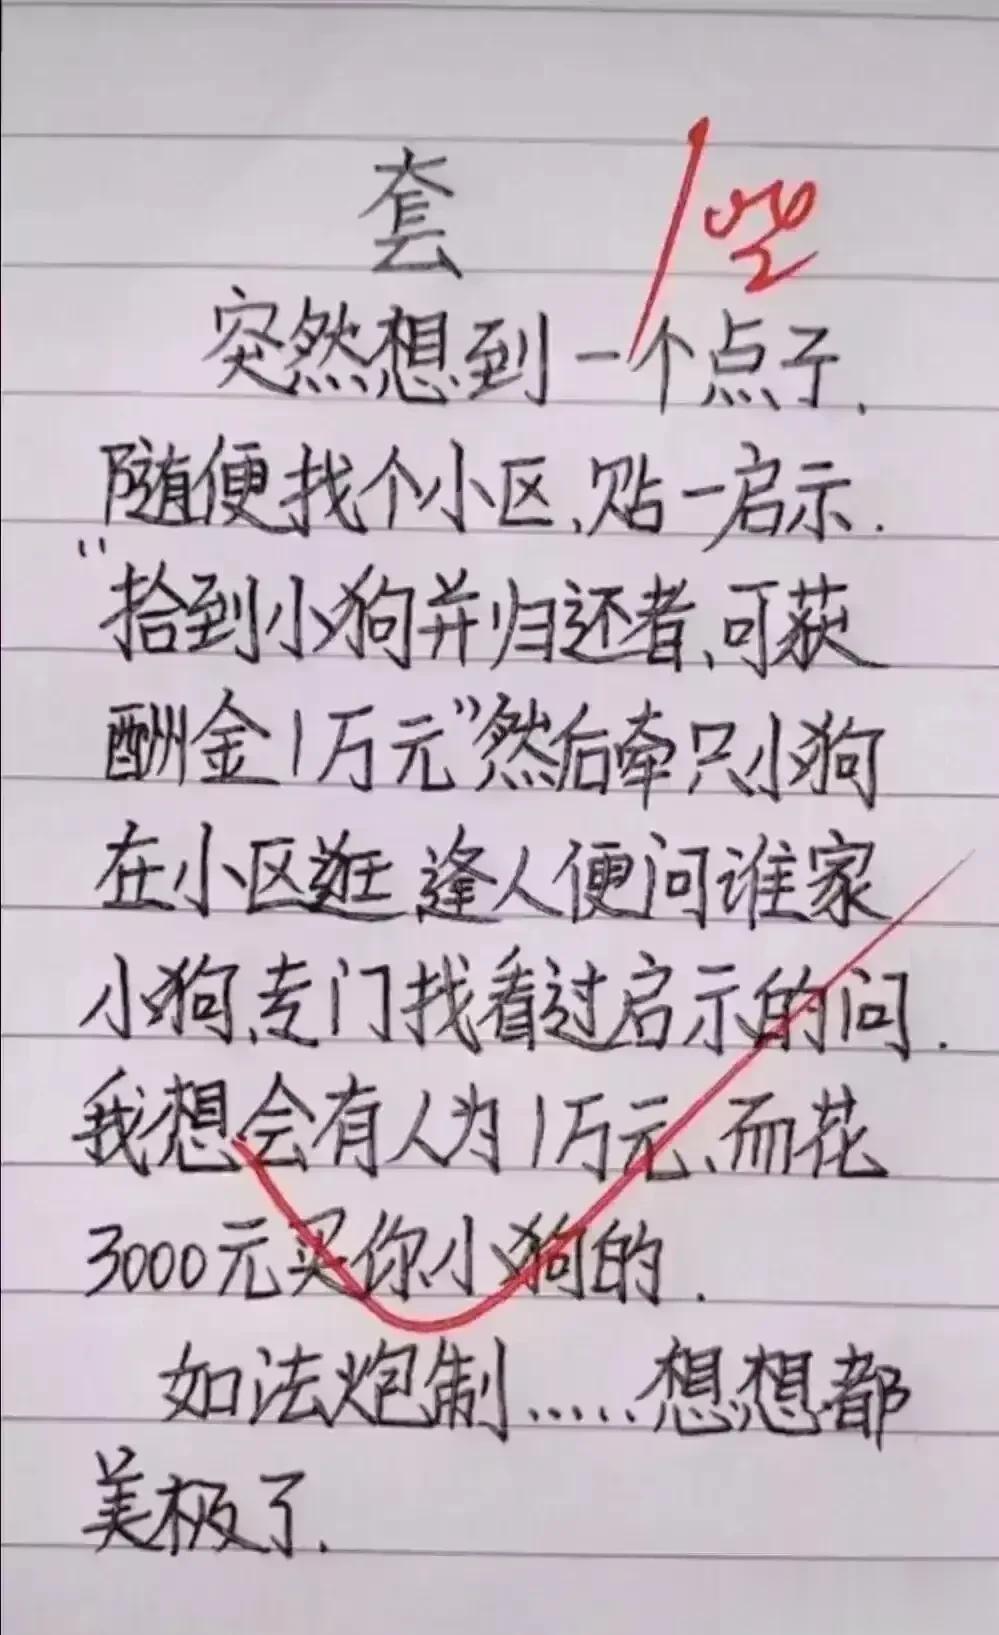 套
突然想到一个点子.
随便找个小区、贴一启示.
“拾到小狗并归还者、可获
酬金1万元”然后牵只小狗
在小区逛 逢人便问谁家
小狗、专门找看过启示的问.
我想会有人为1万元、而花
3000元买你小狗的.
如法炮制.....想想都
美极了.